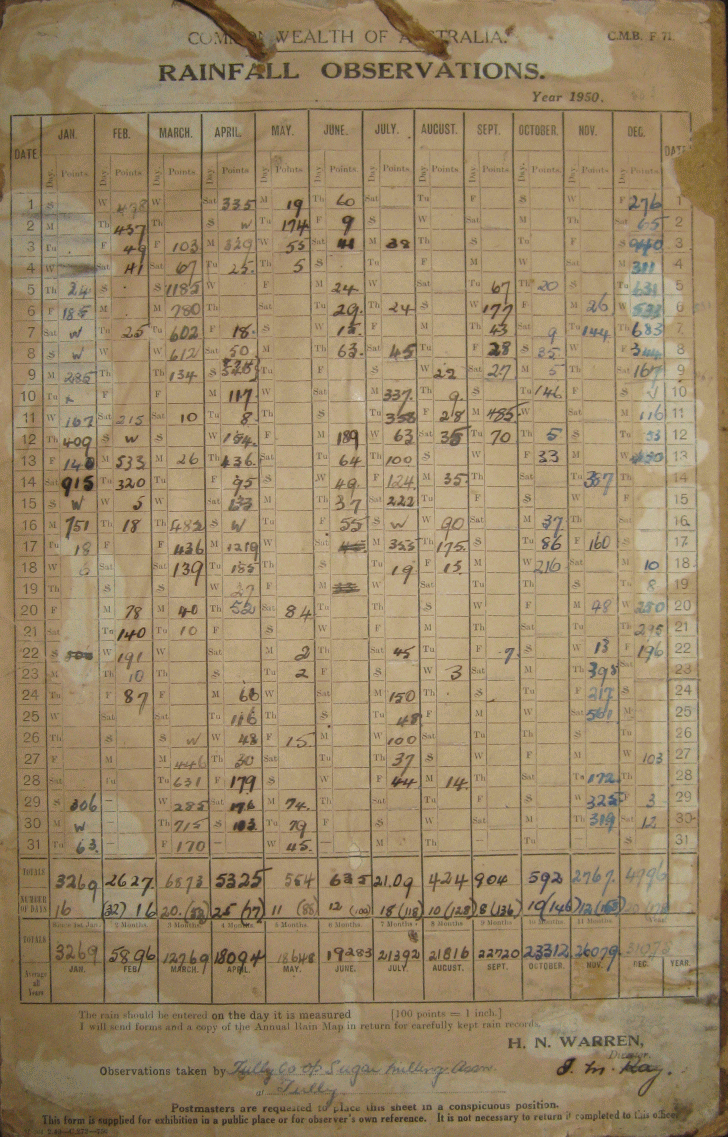 COMMONWEALTH OF AUSTRALIA.
C.M.B. F 71.
RAINFALL OBSERVATIONS.
Year 1950.
DATE JAN. FEB. MARCH. APRIL. MAY. JUNE. JULY. AUGUST. SEPT. OCTOBER. NOV. DEC. DATE
Day. Points. Day. Points. Day. Points. Day. Points. Day. Points. Day. Points. Day. Points. Day. Points. Day. Points. Day. Points. Day. Points. Day. Points.
1 S W W Sat 335 M 19 Th 60 Sat Tu F S W F 276 1
2 M Th 437 Th S W Tu 174 F 9 S W Sat M Th Sat 65 2
3 Tu F 49 F 103 M W 55 Sat M 38 Th S Tu F S 940 3
4 W Sat 41 Sat 67 Tu 25 Th 5 S Tu F M W Sat M 311 4
5 Th 24 S S 1185 W F M 24 W Sat Tu 67 Th 20 S Tu 631 5
6 F 185 M M 780 Th Sat Tu 29 Th 24 S W 177 F M 26 W 6
7 Sat W Tu 25 Tu 602 F 18 S W 15 F M Th 43 Sat 9 Tu 144 Th 683 7
8 S W W W 612 Sat 50 M Th 63 Sat 45 Tu F 28 S 35 W F 8
9 M 285 Th Th 134 S Tu F S W 22 Sat 27 M 5 Th Sat 167 9
10 Tu F F M 117 W Sat M 337 Th 9 S Tu 146 F S 10
11 W 167 Sat 215 Sat 10 Tu 8 Th S Tu 358 F 28 M 485 W Sat M 116 11
12 Th 409 S W S W 154 F M 189 W 63 Sat 35 Tu 70 Th 5 S Tu 53 12
13 F 140 M 533 M 26 Th 436 Sat Tu 64 Th 100 S W F 33 M W 13
14 Sat 915 Tu 320 Tu F 95 S W 49 F 124 M 35 Th Sat Tu 357 Th 14
15 S W W 5 W Sat M Th 37 Sat 222 Tu F S W F 15
16 M 751 Th 18 Th 482 S W Tu F 55 S W W 90 Sat M 37 Th Sat 16
17 Tu 18 F F 436 M 1219 W Sat M 353 Th 175 S Tu 86 F 160 S 17
18 W Sat Sat 139 Tu 185 Th S Tu 19 F 15 M W 216 Sat M 10 18
19 Th S S W 27 F M W Sat Tu Th S Tu 8 19
20 F M 78 M 40 Th 52 Sat 84 Tu Th S W F M 48 W 250 20
21 Sat Tu 140 Tu 10 F S W F M Th Sat Tu Th 21
22 S W 191 W Sat M 2 Th Sat 45 Tu F 7 S W 13 F 196 22
23 M Th 10 Th S Tu 2 F S W 3 Sat M Th 398 Sat 23
24 Tu F 87 F M 68 W Sat M 150 Th S Tu F 217 S 24
25 W Sat Sat Tu 116 Th S Tu 48 F M W Sat 561 M 25
26 Th S S W W 48 F 15 M W 100 Sat Tu Th S Tu 26
27 F M M 446 Th 30 Sat Tu Th 37 S W F M W 103 27
28 Sat Tu Tu 631 F 179 S W F 44 M 14 Th Sat Tu 172 Th 28
29 S 306 — W 285 Sat 176 M 74 Th Sat Tu F S W 325 F 3 29
30 M W — Th 715 S 103 Tu 79 F S W Sat M Th 319 Sat 12 30
31 Tu 63 — F 170 — W 45 — M Th — Tu — S 31
TOTALS 3269 2627 6873 5325 554 635 2109 424 904 592 2767 4996
NUMBER OF DAYS 16 (32) 16 20 (52) 25 (77) 11 (88) 12 (100) 18 (118) 10 (128) 8 (136) 10 (146) 12 (158) 20 (178)
Since 1st Jan. 2 Months 3 Months 4 Months 5 Months 6 Months 7 Months 8 Months 9 Months 10 Months 11 Months Year.
TOTALS 3269 5896 12769 18094 18648 19283 21392 21816 22720 23312 26079 31075
Average all Years JAN. FEB. MARCH. APRIL. MAY. JUNE. JULY. AUGUST. SEPT. OCTOBER. NOV. DEC. YEAR.
The rain should be entered on the day it is measured [100 points = 1 inch.]
I will send forms and a copy of the Annual Rain Map in return for carefully kept rain records.
H. N. WARREN,
Director.
Observations taken by Tully Co op Sugar Milling Assn.
at Tully
Postmasters are requested to place this sheet in a conspicuous position.
This form is supplied for exhibition in a public place or for observer's own reference. It is not necessary to return it completed to this office